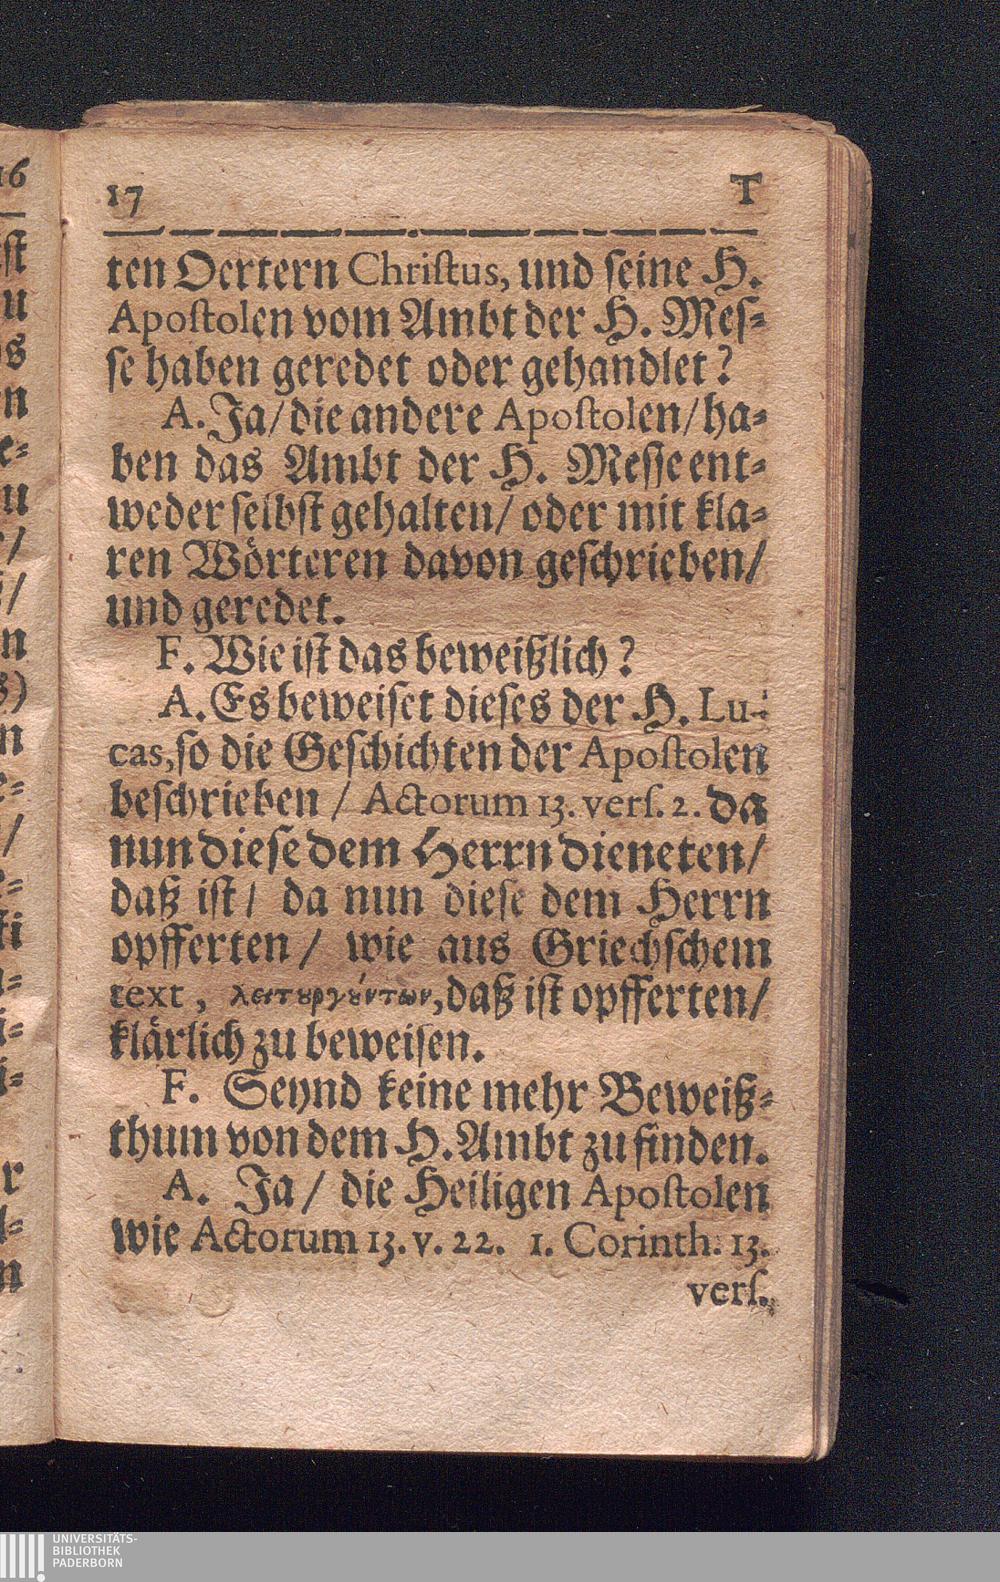 17 T
ten Oertern Christus, und seine H.
Apostolen vom Ambt der H. Mes-
se haben geredet oder gehandlet?
A. Ja/ die andere Apostolen/ ha-
ben das Ambt der H. Messe ent-
weder selbst gehalten/ oder mit kla-
ren Wörteren davon geschrieben/
und geredet.
F. Wie ist das beweißlich?
A. Es beweiset dieses der H. Lu-
cas, so die Geschichten der Apostolen
beschrieben / Actorum 13. vers. 2. da
nun diese dem Herrn dieneten/
daß ist/ da nun diese dem Herrn
opfferten / wie aus Griechschem
text, λειτȣργȣ́ντων, daß ist opfferten/
klärlich zu beweisen.
F. Seynd keine mehr Beweiß-
thum von dem H. Ambt zu finden.
A. Ja / die Heiligen Apostolen
wie Actorum 13. v. 22. 1. Corinth. 13.
vers.
UNIVERSITÄTS-
BIBLIOTHEK
PADERBORN